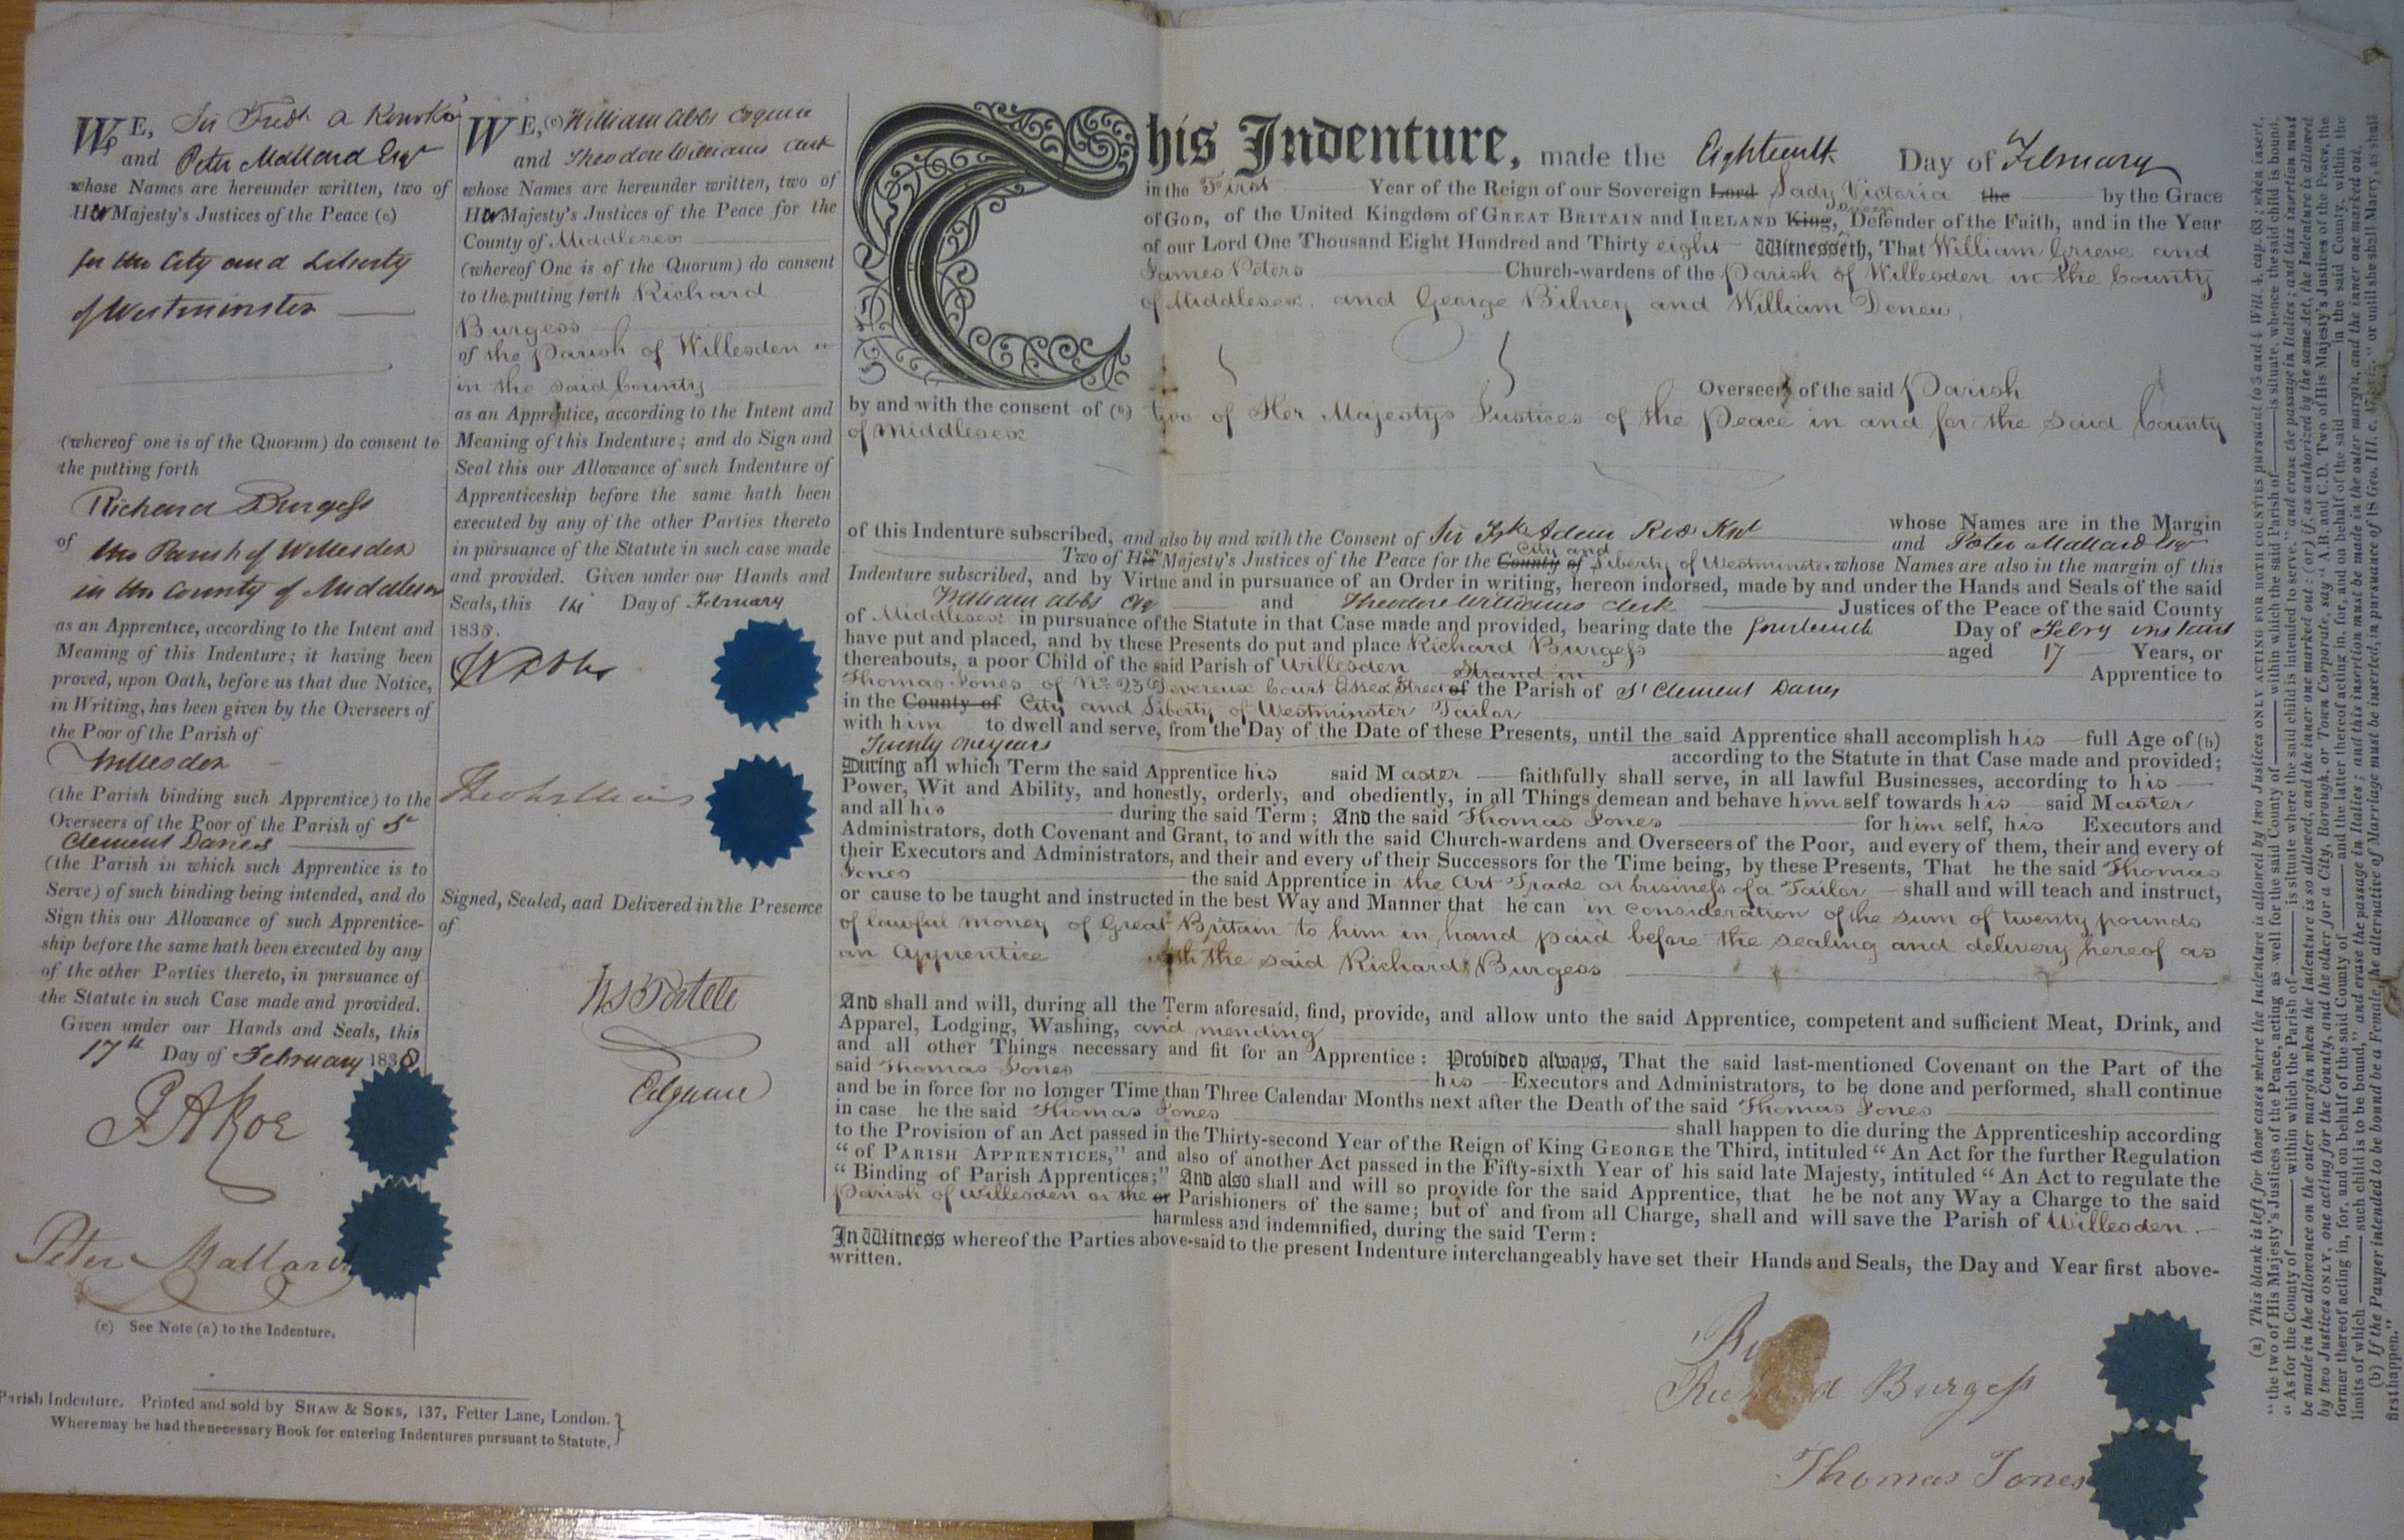 WE, Sir Fredk a Roe Kt
and Peter Mallard Esqr
whose Names are hereunder written, two of
Her Majesty's Justices of the Peace (c)
for the City and Liberty
of Westminster
(whereof one is of the Quorum) do consent to
the putting forth
Richard Burgess
of the Parish of Willesden
in the County of Middlesex
as an Apprentice, according to the Intent and
Meaning of this Indenture; it having been
proved, upon Oath, before us that due Notice,
in Writing, has been given by the Overseers of
the Poor of the Parish of
Willesden
(the Parish binding such Apprentice) to the
Overseers of the Poor of the Parish of St
Clement Danes
(the Parish in which such Apprentice is to
Serve) of such binding being intended, and do
Sign this our Allowance of such Apprentice-
ship before the same hath been executed by any
of the other Parties thereto, in pursuance of
the Statute in such Case made and provided.
Given under our Hands and Seals, this
17th Day of February 1838
F A Roe
Peter Mallard
(c) See Note (a) to the Indenture.
Parish Indenture. Printed and sold by SHAW & SONS, 137, Fetter Lane, London.
Where may be had the necessary Book for entering Indentures pursuant to Statute.
WE, (c) William Abbs Esquire
and Theodore Williams Clerk
whose Names are hereunder written, two of
Her Majesty's Justices of the Peace for the
County of Middlesex
(whereof One is of the Quorum) do consent
to the putting forth Richard
Burgess
of the Parish of Willesden
in the said County
as an Apprentice, according to the Intent and
Meaning of this Indenture; and do Sign and
Seal this our Allowance of such Indenture of
Apprenticeship before the same hath been
executed by any of the other Parties thereto
in pursuance of the Statute in such case made
and provided. Given under our Hands and
Seals, this 14 Day of February
1838.
W Abbs
Theo Williams
Signed, Sealed, and Delivered in the Presence
of
This Indenture, made the Eighteenth Day of February
in the First Year of the Reign of our Sovereign Lord Lady Victoria the by the Grace
of GOD, of the United Kingdom of GREAT BRITAIN and IRELAND King, Queen Defender of the Faith, and in the Year
of our Lord One Thousand Eight Hundred and Thirty eight Witnesseth, That William Grieve and
James Peters Church-wardens of the Parish of Willesden in the County
of Middlesex, and George Bilney and William Denew,
Overseers of the said Parish
by and with the consent of (a) two of Her Majestys Justices of the Peace in and for the said County
of Middlesex
whose Names are in the Margin
of this Indenture subscribed, and also by and with the Consent of Sir Fk Adam Roe Knt
and Peter Mallard Esqr
Two of Her Majesty's Justices of the Peace for the County of City and Liberty of Westminster whose Names are also in the margin of this
Indenture subscribed, and by Virtue and in pursuance of an Order in writing, hereon indorsed, made by and under the Hands and Seals of the said
William Abbs Esq and Theodore Williams Clerk Justices of the Peace of the said County
of Middlesex in pursuance of the Statute in that Case made and provided, bearing date the fourteenth Day of Febry instant
have put and placed, and by these Presents do put and place Richard Burgess aged 17 Years, or
thereabouts, a poor Child of the said Parish of Willesden Apprentice to
Thomas Jones of No 23 Devereux Court Essex Street Strand in of the Parish of St Clement Danes
in the County of City and Liberty of Westminster Tailor
with him to dwell and serve, from the Day of the Date of these Presents, until the said Apprentice shall accomplish his full Age of (b)
Twenty one years according to the Statute in that Case made and provided;
During all which Term the said Apprentice his said Master faithfully shall serve, in all lawful Businesses, according to his
Power, Wit and Ability, and honestly, orderly, and obediently, in all Things demean and behave himself towards his said Master
and all his during the said Term; And the said Thomas Jones for him self, his Executors and
Administrators, doth Covenant and Grant, to and with the said Church-wardens and Overseers of the Poor, and every of them, their and every of
their Executors and Administrators, and their and every of their Successors for the Time being, by these Presents, That he the said Thomas
Jones the said Apprentice in the Art Trade or business of a Tailor shall and will teach and instruct,
or cause to be taught and instructed in the best Way and Manner that he can in consideration of the sum of twenty pounds
of lawful money of Great Britain to him in hand paid before the sealing and delivery hereof as
an Apprentice with the said Richard Burgess
And shall and will, during all the Term aforesaid, find, provide, and allow unto the said Apprentice, competent and sufficient Meat, Drink, and
Apparel, Lodging, Washing, and mending
and all other Things necessary and fit for an Apprentice: Provided always, That the said last-mentioned Covenant on the Part of the
said Thomas Jones his Executors and Administrators, to be done and performed, shall continue
and be in force for no longer Time than Three Calendar Months next after the Death of the said Thomas Jones
in case he the said Thomas Jones shall happen to die during the Apprenticeship according
to the Provision of an Act passed in the Thirty-second Year of the Reign of King GEORGE the Third, intituled "An Act for the further Regulation
"of PARISH APPRENTICES," and also of another Act passed in the Fifty-sixth Year of his said late Majesty, intituled "An Act to regulate the
"Binding of Parish Apprentices;" And also shall and will so provide for the said Apprentice, that he be not any Way a Charge to the said
Parish of Willesden or the or Parishioners of the same; but of and from all Charge, shall and will save the Parish of Willesden
harmless and indemnified, during the said Term:
In Witness whereof the Parties above-said to the present Indenture interchangeably have set their Hands and Seals, the Day and Year first above-
written.
Richard Burgess
Thomas Jones
(a) This blank is left for those cases where the Indenture is allowed by two Justices ONLY ACTING FOR BOTH COUNTIES pursuant to 3 and 4 Will. 4, cap. 63; when insert,
"the two of His Majesty's Justices of the Peace, acting as well for the said County of within which the said Parish of is situate, whence the said child is bound,
"As for the County of within which the Parish of is situate where the said child is intended to serve," and erase the passage in Italics; and this insertion must
be made in the allowance on the outer margin when the Indenture is so allowed, and the inner one marked out: (or) if, as authorized by the same Act, the Indenture is allowed
by two Justices ONLY, one acting for the County, and the other for a City, Borough, or Town Corporate, say "A.B. and C.D. Two of His Majesty's Justices of the Peace, the
former thereof acting in, for, and on behalf of the said County of and the latter thereof acting in, for, and on behalf of the said in the said County, within the
limits of which such child is to be bound," and erase the passage in Italics; and this insertion must be made in the outer margin, and the inner one marked out.
(b) If the Pauper intended to be bound be a Female, the alternative of Marriage must be inserted, in pursuance of 18 Geo. III. c. 47 or until she shall Marry, as shall
first happen."